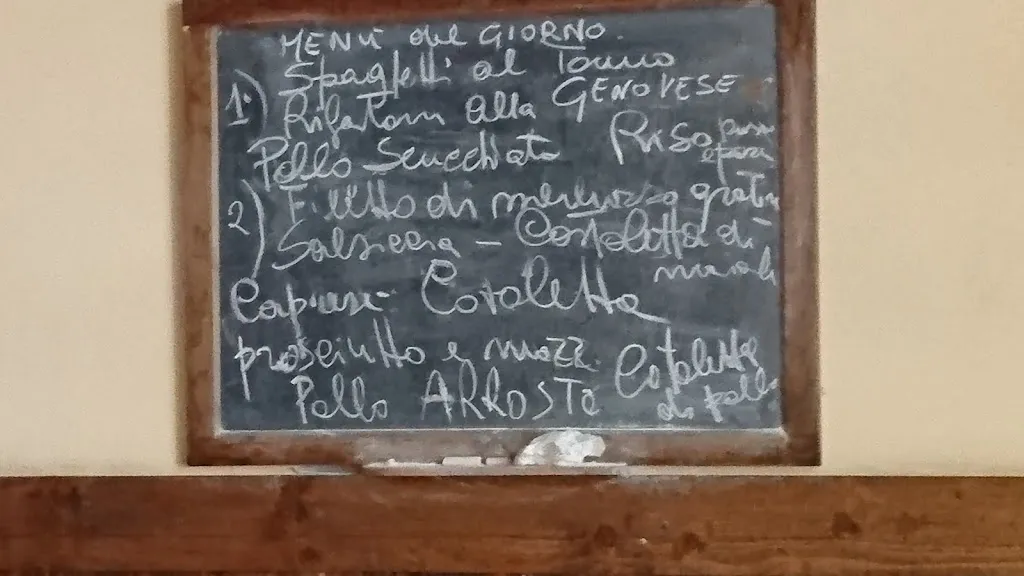 MENU del GIORNO.
Spaghetti al Tonno
1.) Rigatoni alla GENOVESE
Pollo Scucchiato Riso
2) Filetto di merluzzo gratin
Salsiccia - Costoletta di
maiale
Caprese - Cotoletta
prosciutto e mozz.
Pollo ARROSTO Cotoletta
di pollo